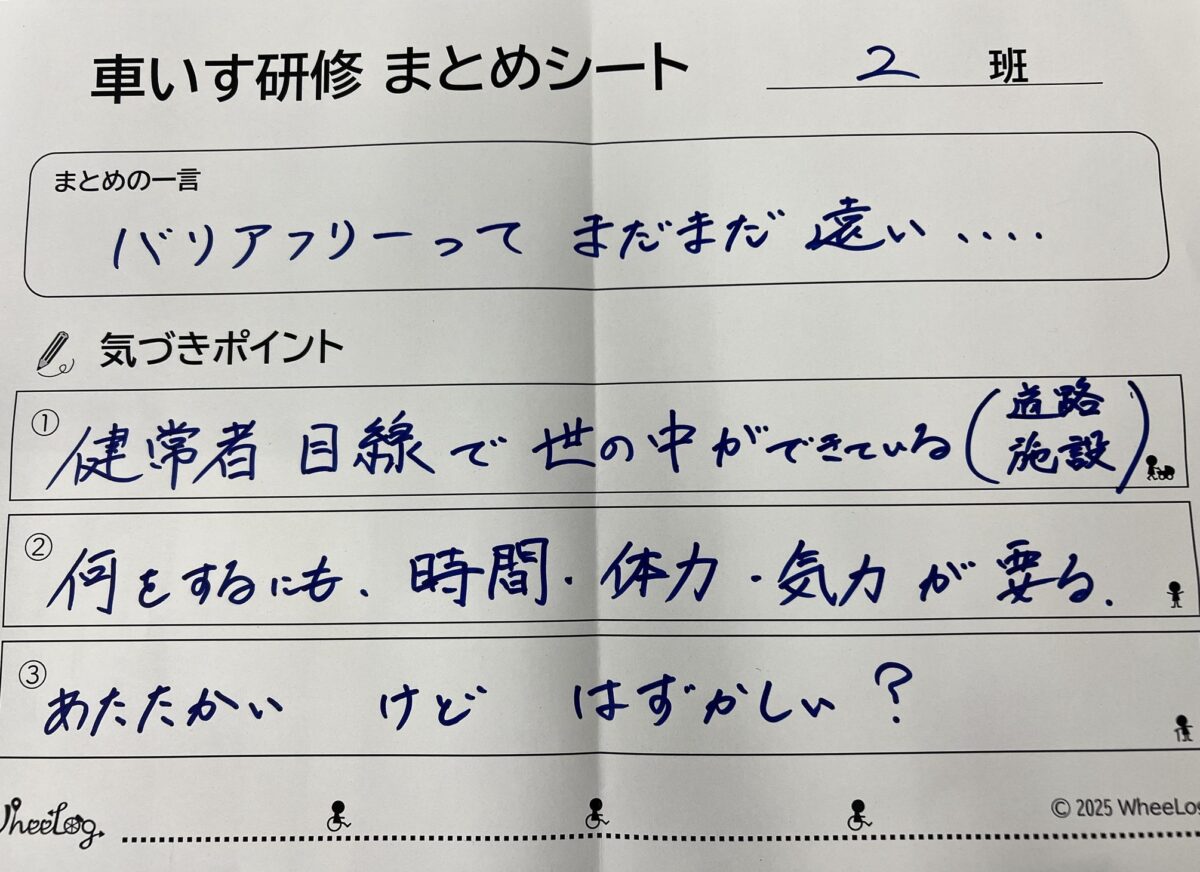 車いす研修 まとめシート 2 班
まとめの一言
バリアフリーって まだまだ 遠い ....
気づきポイント
① 健常者 目線で 世の中ができている(道路 施設)
② 何をするにも、時間・体力・気力が要る.
③ あたたかい けど はずかしい?
WheeLog. © 2025 WheeLog